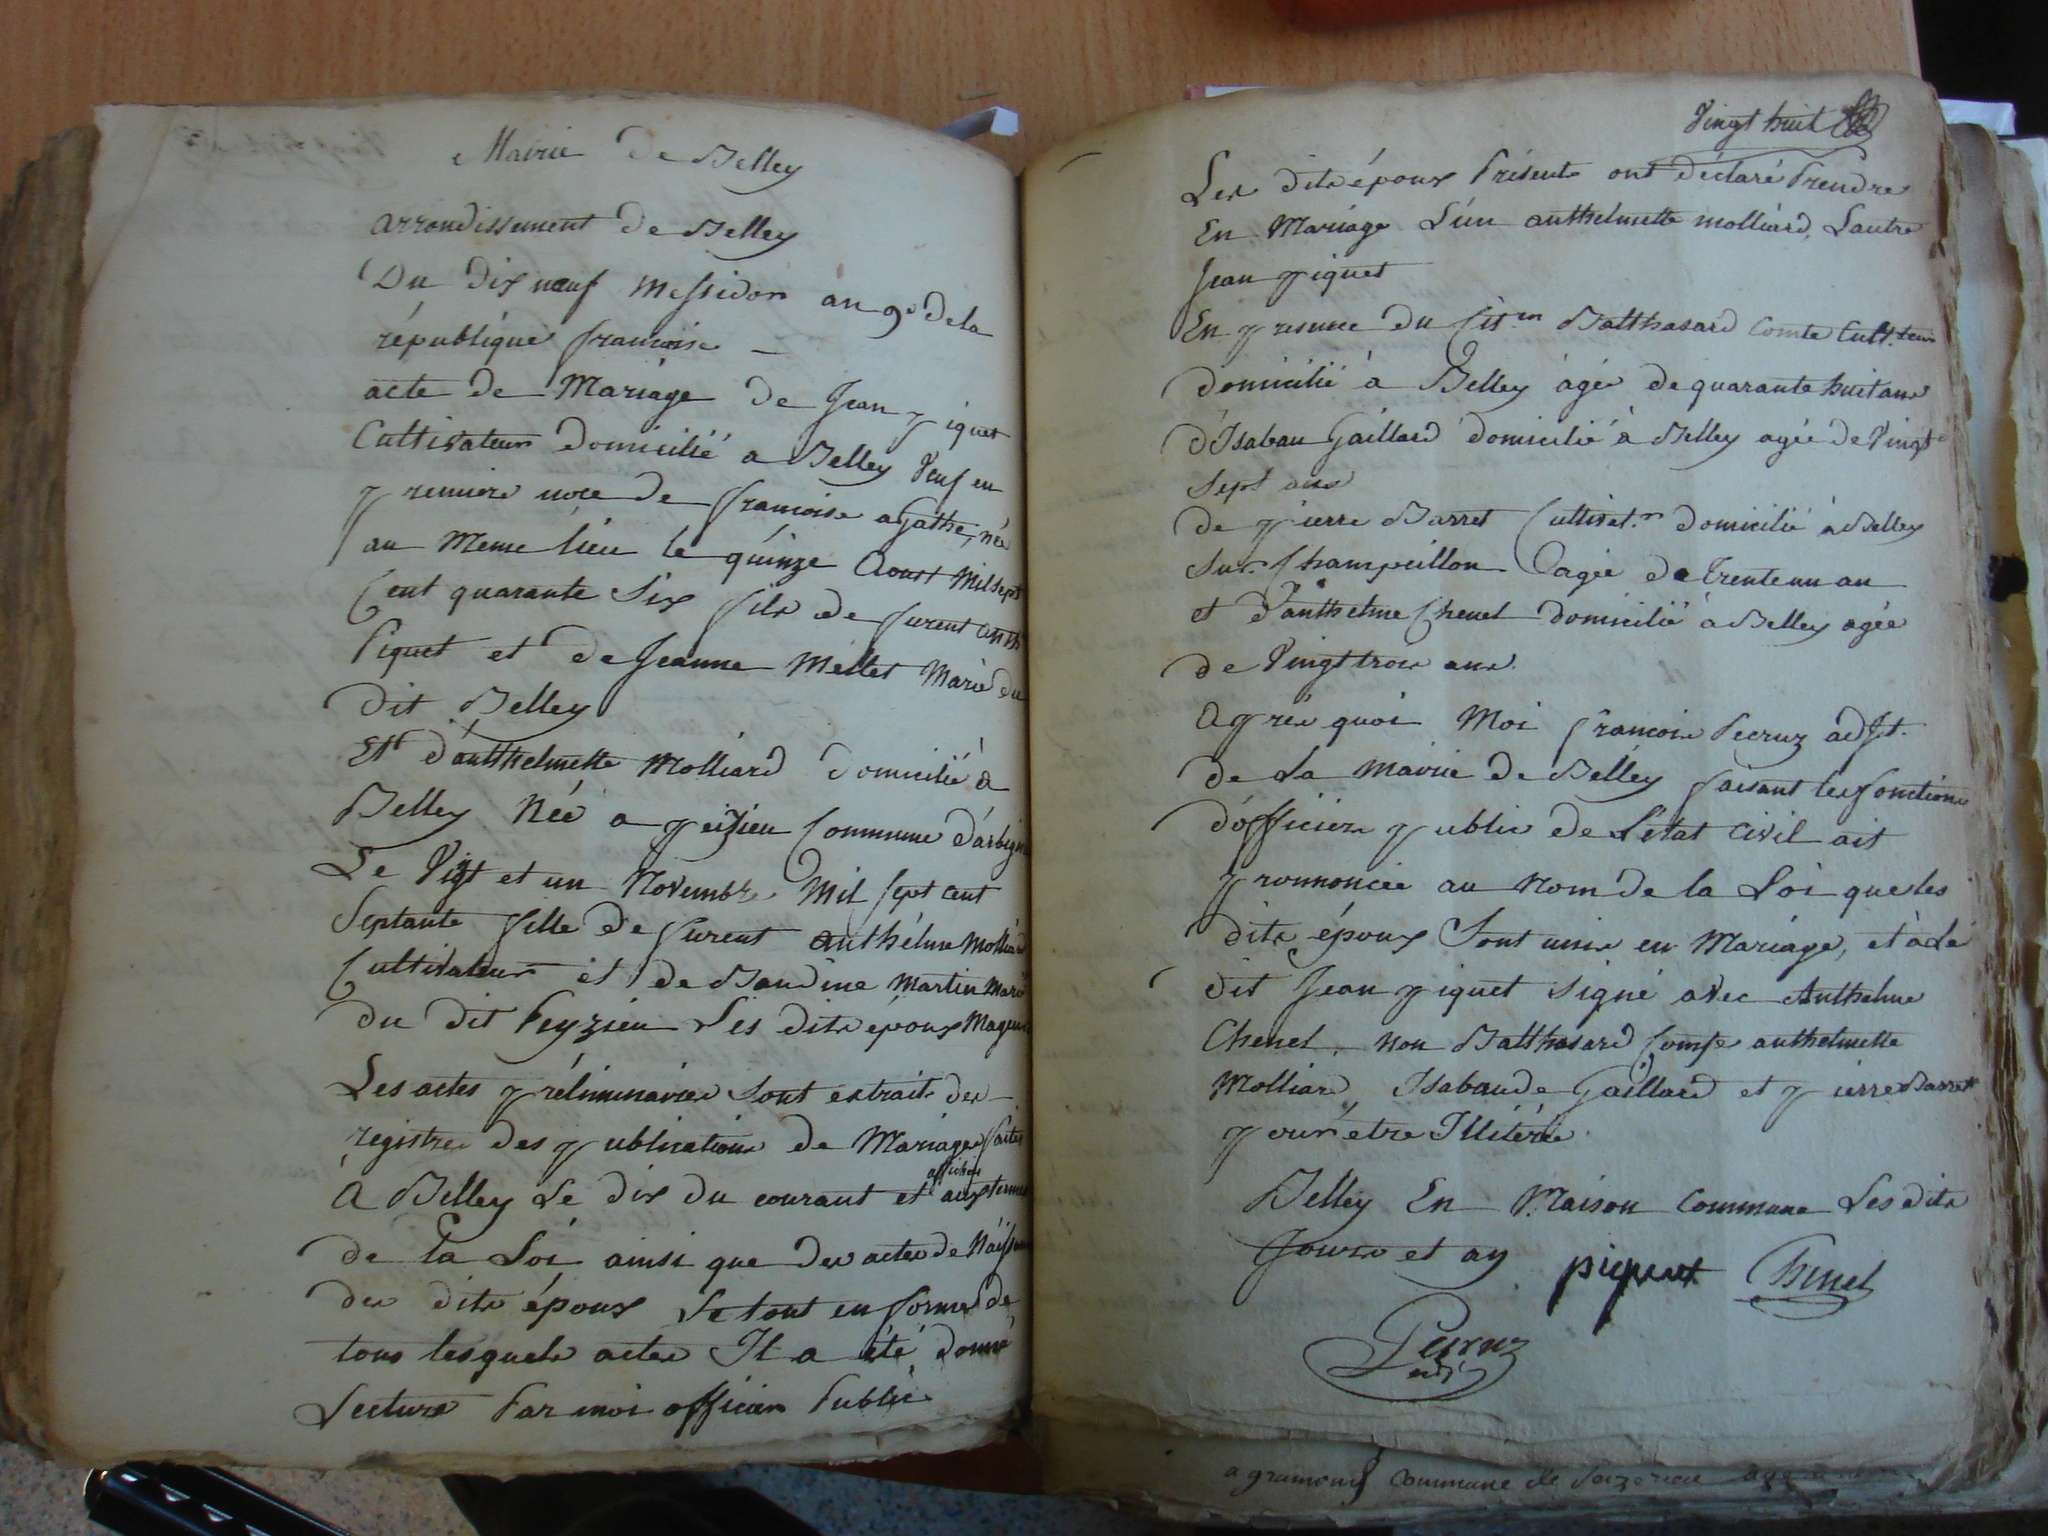 Mairie de Belley
arrondissement de Belley
Du dix neuf Messidor an 9e de la
république francoise
acte de Mariage de Jean piquet
Cultivateur domicilié a Belley Veuf en
premiere noce de francoise agathe, née
au Meme lieu le quinze Aoust Mil sept
Cent quarante Six fils de furent anth
Piquet et de Jeanne Mellet Marié du
dit Belley
Et d'anthelmette Molliard domicilié à
Belley Née a peizieu Commune d'arbign
Le Vigt et un Novembre Mil sept cent
Septante fille de furent anthélme Molliard
Cultivateur et de Bandine Martin Marié
du dit Peyzieu Les dits époux Mageurs
Les actes préliminaires Sont extraits des
registre des publications de Mariages faites
affichés
À Belley Le dix du courant et aux termes
de la Loi ainsi que des actes de Naissan
des dits époux Le tout en forme de
tous lesquels actes Il a été donné
Lecture Par moi officier Public
Vingt huit
Les dits époux Présents ont déclaré Prendre
En Mariage L'un anthelmette molliard, L'autre
Jean piquet
En presence du Cit.en Balthasard Comte Cult.teur
domicilié à Belley âgée de quarante huit ans
d'Isabau Gaillard domicilié à Belley agée de Vingt
Sept ans
de pierre Barret Cultivat.r domicilié à Belley
Sur Champeillon agée de trente un an
et d'anthelme Chenel domicilié à Belley agée
de Vingt trois ans.
Après quoi Moi francois Peeruz adjt.
de La Mairie de Belléy faisant les fonctions
d'officier public de L'état Civil ait
prononcée au Nom de la Loi que les
dits époux Sont unis en Mariage, et à Le
dit Jean piquet Signé avec Anthelme
Chenel, Non Balthasard Comte anthelmette
Molliard, Isabau de Gaillard et pierre Barret
pour être Illitérée.
Belley En Maison Commune Les dits
Jours et an piquet Chenel
Peeruz
adjt
a gramond Commune de